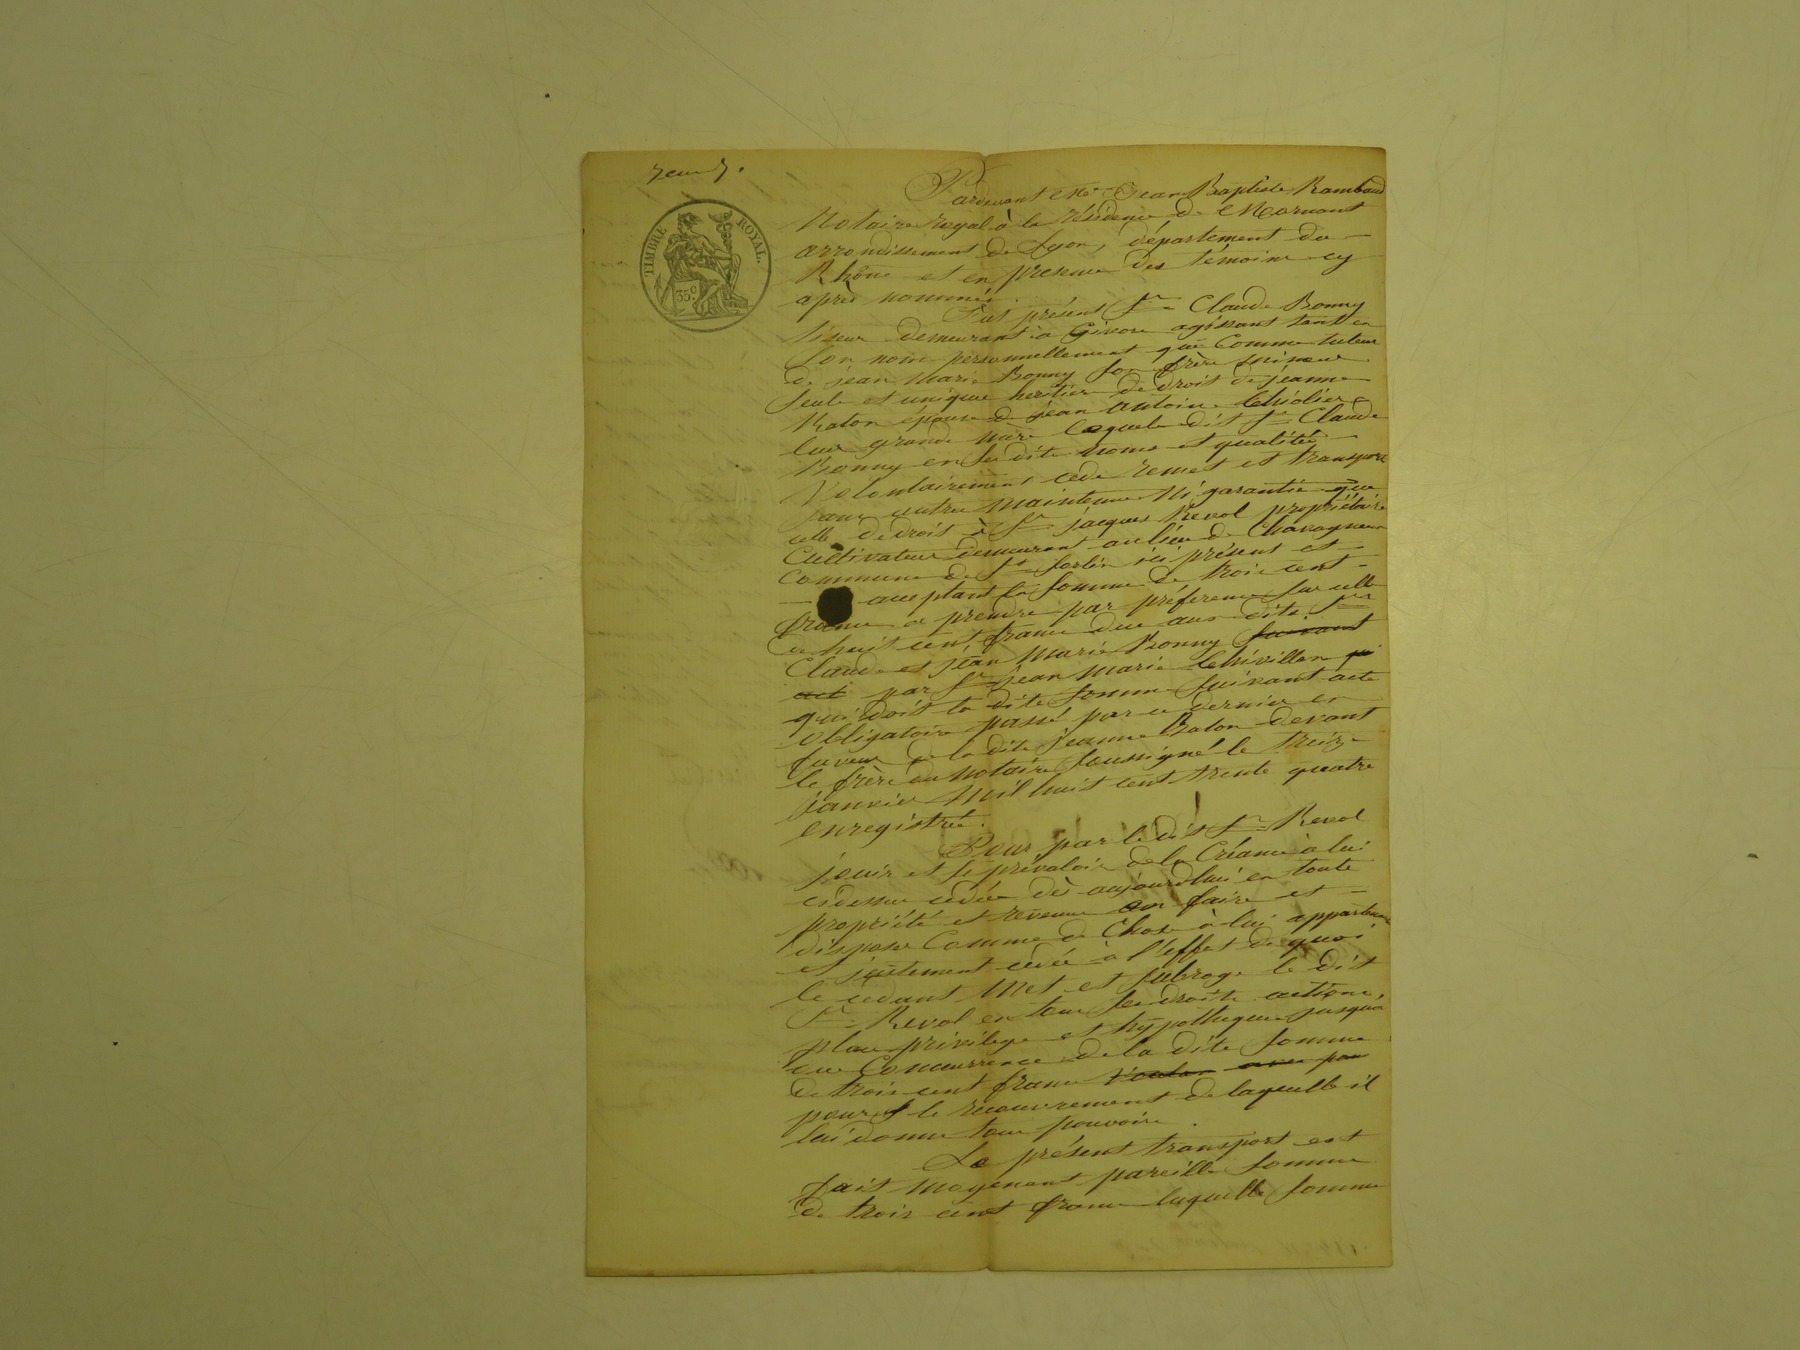 TIMBRE ROYAL.
35c
Pardevant Me Jean Baptiste Rambaud
Notaire royal à la résidence de Mornant
arrondissement de Lyon, département du
Rhône et en présence des témoins cy
après nommés.
Fut présent Sr Claude Bonny
demeurant à Givors agissant tant en
son nom personnellement que comme tuteur
de jean Marie Bonny son frère mineur
seuls et unique heritiers de droit de jeanne
Raton épouse de jean antoine Thiolier
leur grande mère lequel dit Sr Claude
Bonny en ses dits noms et qualités
Volontairement cède remet et transporte
sans autre maintenue Ni garantie que
celle de droit à Sr jacques Revol propriétaire
Cultivateur demeurant au lieu de Chavagneux
Commune de St Sorlin ici présent et
acceptant la somme de trois cent
francs a prendre par préférence sur celle
de huit cent francs due aux dits Srs
Claude et jean Marie Bonny suivant
act par Sr jean Marie Thivillon qui
qui doit la dite somme suivant acte
obligatoire passé par ce dernier en
faveur de la dite jeanne Raton devant
le frère du Notaire soussigné le treize
janvier Mil huit cent trente quatre
enregistré.
Pour par le dit Sr Revol
jouir et se prévaloir de la Créance à lui
cidessus cédée dès aujourdhui en toute
propriété et revenus en faire et
disposer Comme de Chose à lui appartenant
et justement cédée à l'effet de quoi
le cédant Met et subroge le dit
Sr Revol en tous ses droits actions,
place privilège et hypothèques jusqu'à
due Concurrence de la dite somme
de trois cent francs
pour le recouvrement de laquelle il
lui donne tous pouvoirs.
Le présent transport est
fait moyenant pareille somme
de trois cent francs laquelle somme